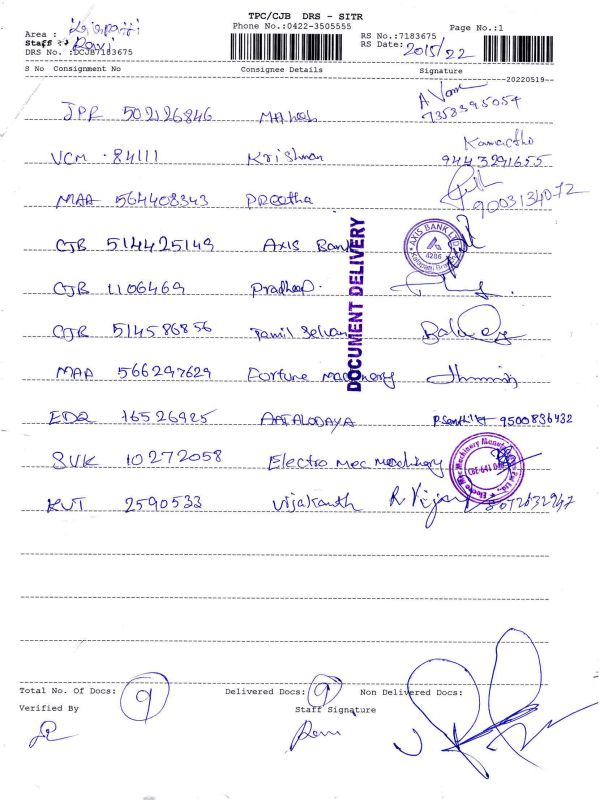 TPC/CJB DRS - SITR
Phone No.:0422-3505555
Page No.:1
Area :
Staff : Ravi
RS No.:7183675
DRS No. :DCJB7183675
RS Date: 20/5/22
S No Consignment No Consignee Details Signature
20220519
JPR 502126846 Mahesh 7358395054
VCM 84111 Krishnan 9443291655
MAA 564408343 Preetha 9003134072
CJB 514425149 Axis Bank AXIS BANK LTD 4286
CJB 1106469 Pradeep
CJB 514586856 Tamil Selvan Bala
MAA 566297629 Fortune Machinery
EDQ 16526925 9500836432
SVK 10272058 Electro Mec Machinery
KVT 2590533 Vijakanth R Vijay
DOCUMENT DELIVERY
Total No. Of Docs: 9 Delivered Docs: 9 Non Delivered Docs:
Verified By Staff Signature
Ravi